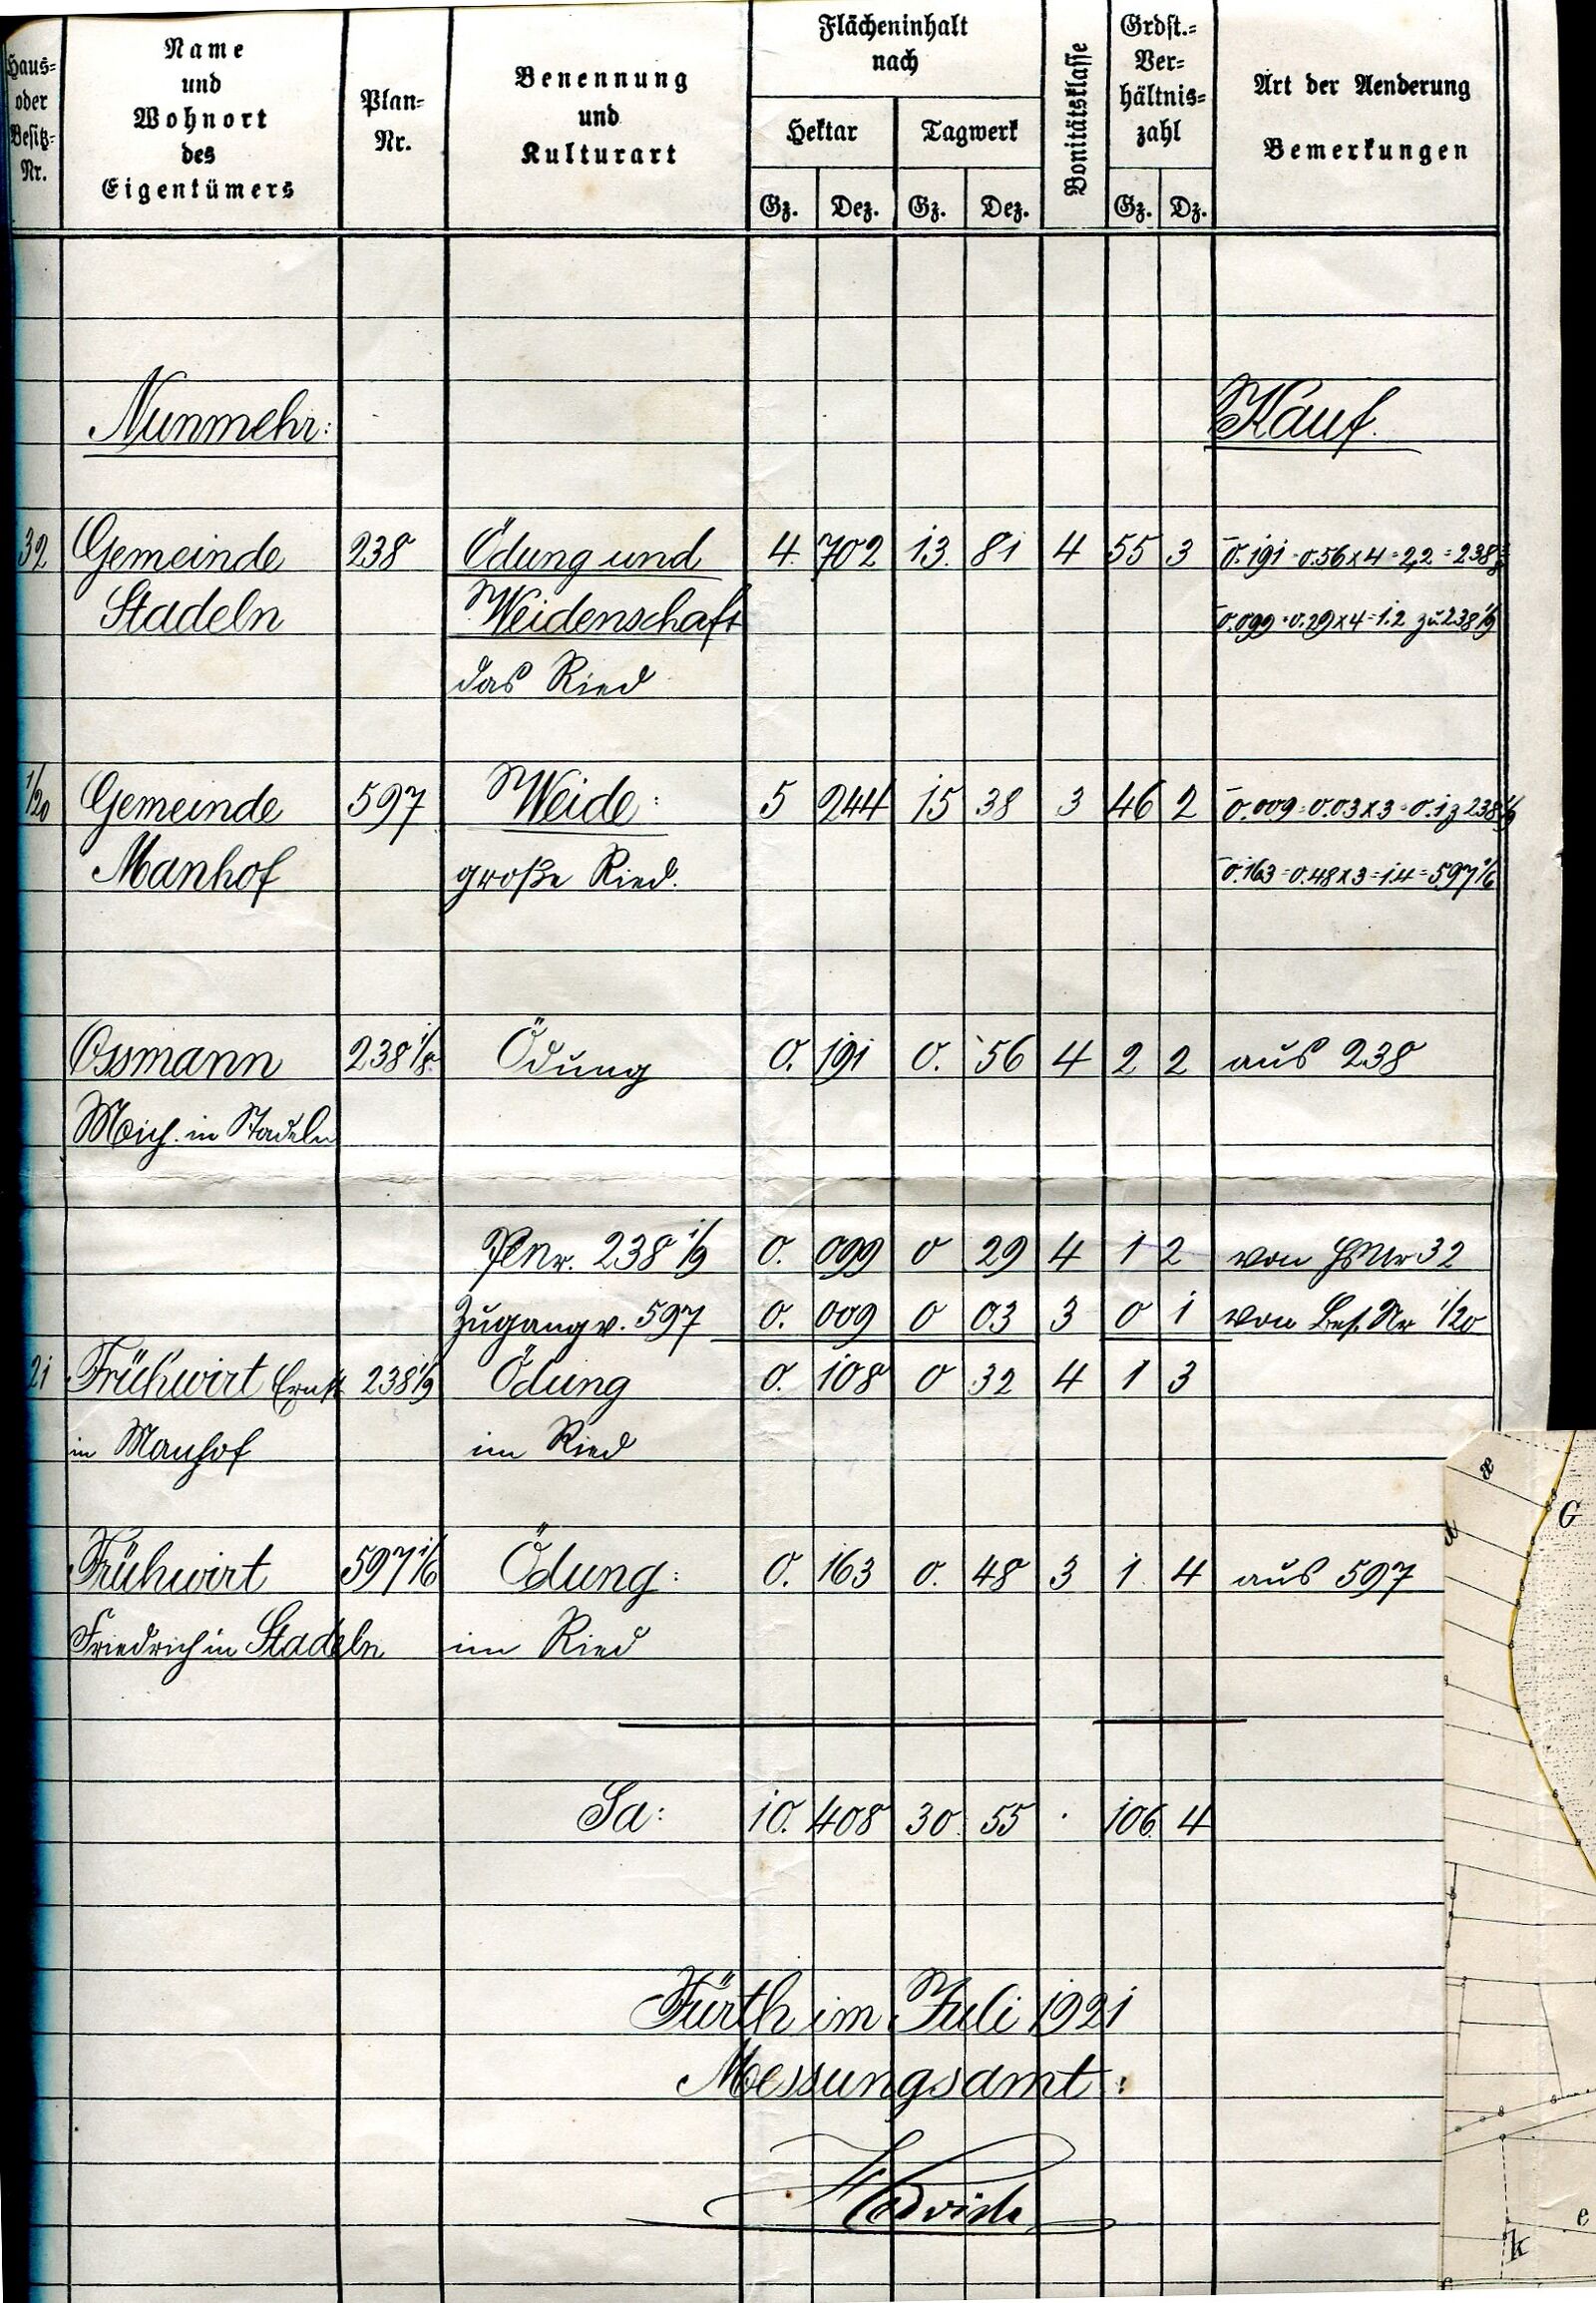 Haus= oder Besitz= Nr.
Name und Wohnort des Eigentümers
Plan= Nr.
Benennung und Kulturart
Flächeninhalt nach
Hektar Tagwerk
Gz. Dez. Gz. Dez.
Bonitätsklasse
Grdst.= Ver= hältnis= zahl
Gz. Dz.
Art der Aenderung
Bemerkungen
Nunmehr: Kauf.
32 Gemeinde 238 Ödung und 4. 702 13. 81 4 55 3 -0.191 = 0.56 x 4 = 2,2 = 238
Stadeln Weidenschaft -0.099 = 0.29 x 4 = 1.2 zu 238 1/9
das Ried
1/20 Gemeinde 597 Weide: 5 244 15 38 3 46 2 -0.009 = 0.03 x 3 = 0.1 z 238 1/9
Manhof große Ried. -0.163 = 0.48 x 3 = 1.4 = 597 1/6
Ossmann 238 1/8 Ödung 0. 191 0. 56 4 2 2 aus 238
Mich. in Stadeln
PlNr. 238 1/9 0. 099 0 29 4 1 2 von HsNr 32
Zugang v. 597 0. 009 0 03 3 0 1 von Bes. Nr 1/20
21 Frühwirt Ernst 238 1/9 Ödung 0. 108 0 32 4 1 3
in Manhof im Ried
Frühwirt 597 1/6 Ödung: 0. 163 0. 48 3 1. 4 aus 597
Friedrich in Stadeln im Ried
Sa: 10. 408 30. 55 · 106. 4
Fürth im Juli 1921
Messungsamt:
æ
G
a
e
k